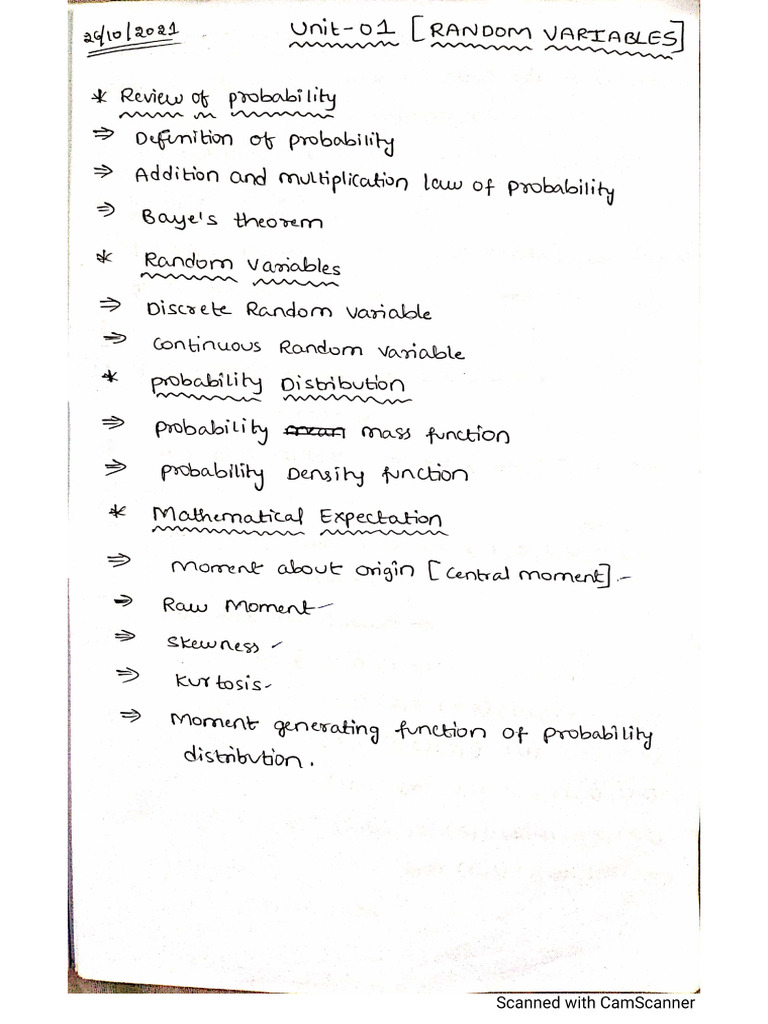 26/10/2021
Unit-01 [RANDOM VARIABLES]
* Review of probability
⇒ Definition of probability
⇒ Addition and multiplication law of probability
⇒ Baye's theorem
* Random Variables
⇒ Discrete Random variable
⇒ Continuous Random variable
* probability Distribution
⇒ probability mass function
⇒ probability Density function
* Mathematical Expectation
⇒ Moment about origin [central moment].-
⇒ Raw Moment-
⇒ Skewness
⇒ Kurtosis-
⇒ Moment generating function of probability
distribution.
Scanned with CamScanner